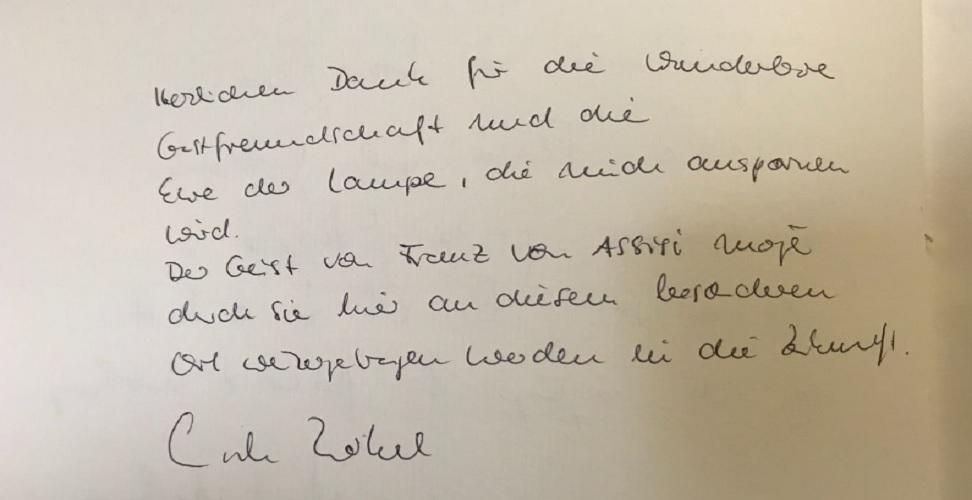 Herzlichen Dank für die wunderbare
Gastfreundschaft und die
Ehre der Lampe, die mich anspornen
wird.
Der Geist von Franz von Assisi möge
durch Sie hier an diesem besonderen
Ort weitergetragen werden in die Zukunft.